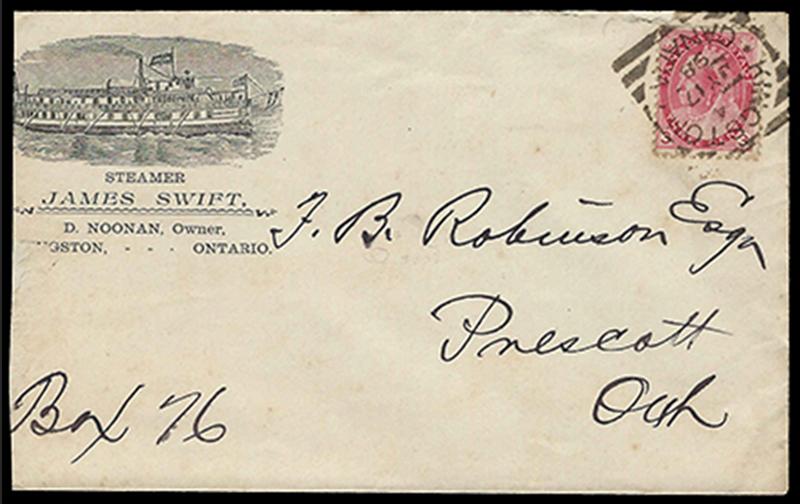 STEAMER
JAMES SWIFT.
D. NOONAN, Owner,
GSTON, - - - ONTARIO.
J. B. Robinson Esqr
Prescott
Ont
Box 76
KINGSTON CANADA
98
3